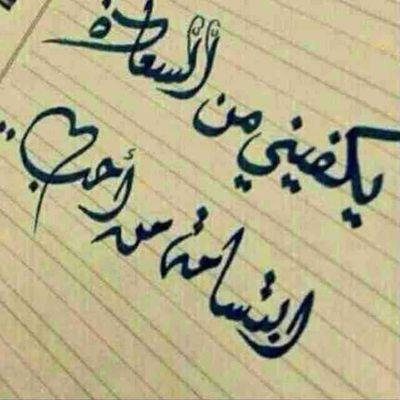 يكفيني من السعادة
ابتسامة من أحب..